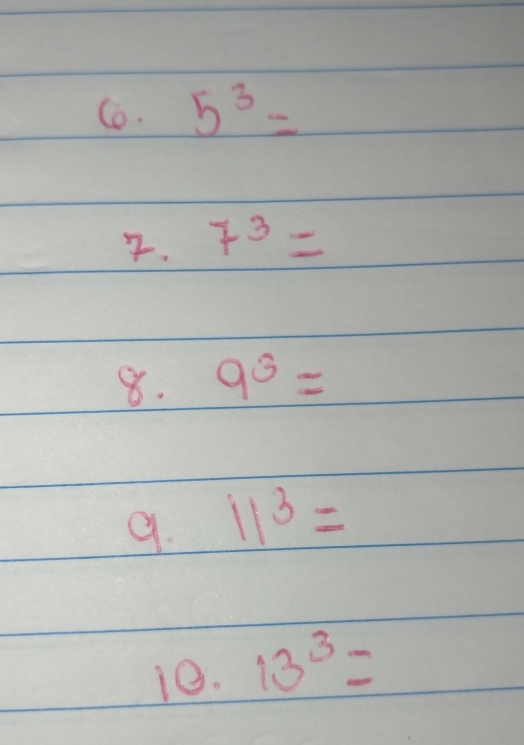 6. 5³ =
7. 7³ =
8. 9³ =
9. 11³ =
10. 13³ =